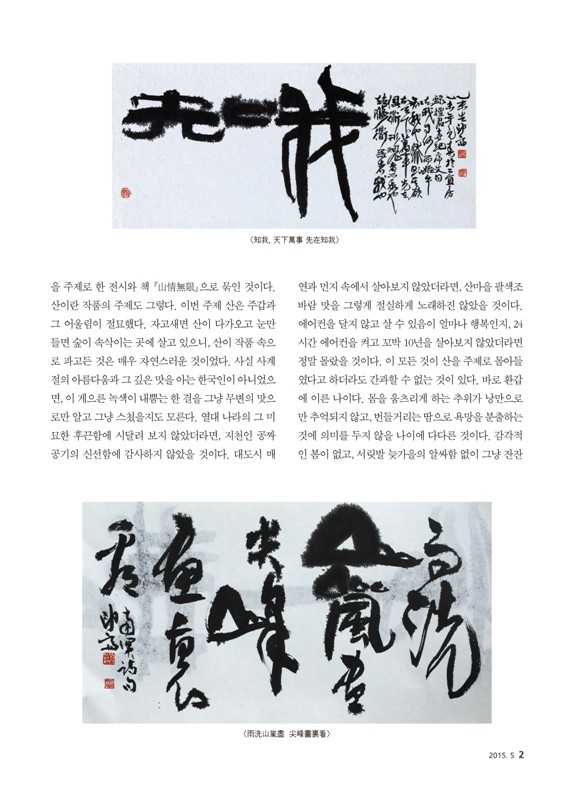 〈知我, 天下萬事 先在知我〉
을 주제로 한 전시와 책 『山情無限』으로 묶인 것이다.
산이란 작품의 주제도 그렇다. 이번 주제 산은 주갑과
그 어울림이 절묘했다. 자고새면 산이 다가오고 눈만
들면 숲이 속삭이는 곳에 살고 있으니, 산이 작품 속으
로 파고든 것은 매우 자연스러운 것이었다. 사실 사계
절의 아름다움과 그 깊은 맛을 아는 한국인이 아니었으
면, 이 게으른 녹색이 내뿜는 한 결을 그냥 무변의 맛으
로만 알고 그냥 스쳤을지도 모른다. 열대 나라의 그 미
묘한 후끈함에 시달려 보지 않았더라면, 지천인 공짜
공기의 신선함에 감사하지 않았을 것이다. 대도시 매
연과 먼지 속에서 살아보지 않았더라면, 산마을 팔색조
바람 맛을 그렇게 절실하게 노래하진 않았을 것이다.
에어컨을 달지 않고 살 수 있음이 얼마나 행복인지, 24
시간 에어컨을 켜고 꼬박 10년을 살아보지 않았더라면
정말 몰랐을 것이다. 이 모든 것이 산을 주제로 몰아들
였다고 하더라도 간과할 수 없는 것이 있다. 바로 환갑
에 이른 나이다. 몸을 움츠리게 하는 추위가 낭만으로
만 추억되지 않고, 번들거리는 땀으로 욕망을 분출하는
것에 의미를 두지 않을 나이에 다다른 것이다. 감각적
인 봄이 없고, 서릿발 늦가을의 알싸함 없이 그냥 잔잔
〈雨洗山嵐盡 尖峰畫裏看〉
2015. 5 2